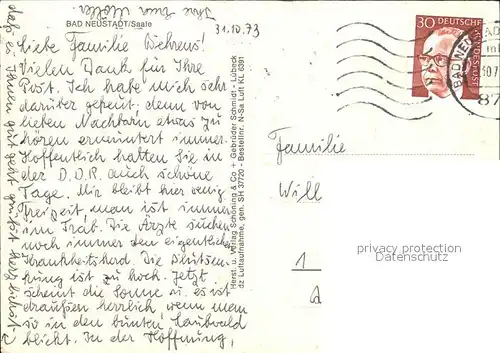 BAD NEUSTADT/Saale
31.10.73
Liebe Familie Behrens!
Vielen Dank für Ihre
Post. Ich habe mich sehr
darüber gefreut, denn von
lieben Nachbarn etwas zu
hören ermuntert immer.
Hoffentlich hatten Sie in
der D.D.R. auch schöne
Tage. Mir bleibt hier wenig
Freizeit, man ist immer
im Trab. Die Ärzte suchen
noch immer den eigentlichen
Krankheitsherd. Die Blutsen-
kung ist zu hoch. Jetzt
scheint die Sonne u. es ist
draußen herrlich, wenn man
so in den bunten Laubwald
blickt. In der Hoffnung,
daß es Ihnen gut geht grüßt herzlichst
Ihre
Herst. u. Verlag Schöning & Co + Gebrüder Schmidt - Lübeck
dz Luftaufnahme, gen. SH 37720 - Bestellnr. N-Sa Luft KL 6391
30 DEUTSCHE
BUNDESPOST
BAD NEU
87
Familie
Will
privates Angesichtsfeld
Datenschutz
1